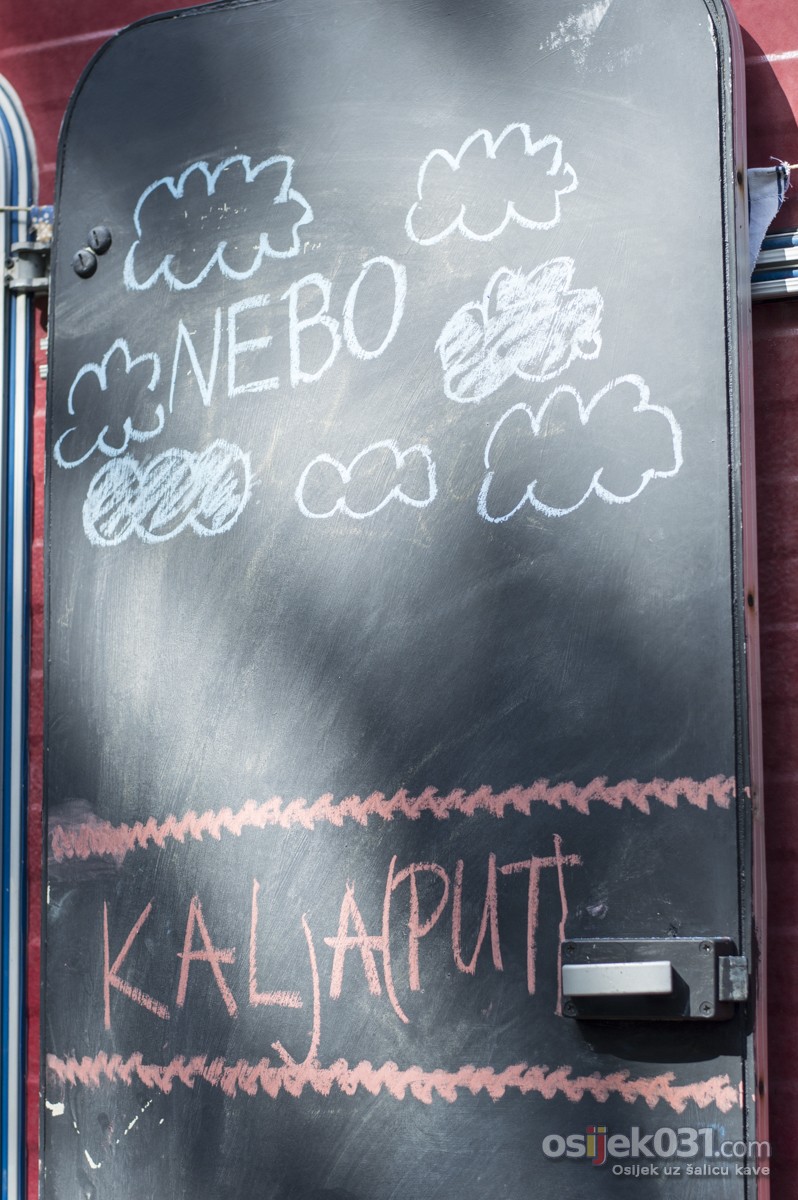 NEBO
KALJA(PUT)
osijek031.com
Osijek uz šalicu kave